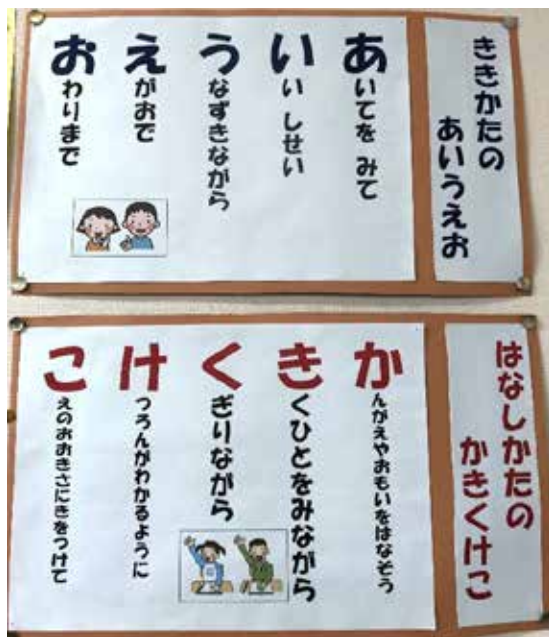 ききかたの
あいうえお
あいてを みて
いい しせい
うなずきながら
えがおで
おわりまで
はなしかたの
かきくけこ
かんがえやおもいをはなそう
きくひとをみながら
くぎりながら
けつろんがわかるように
こえのおおきさにきをつけて